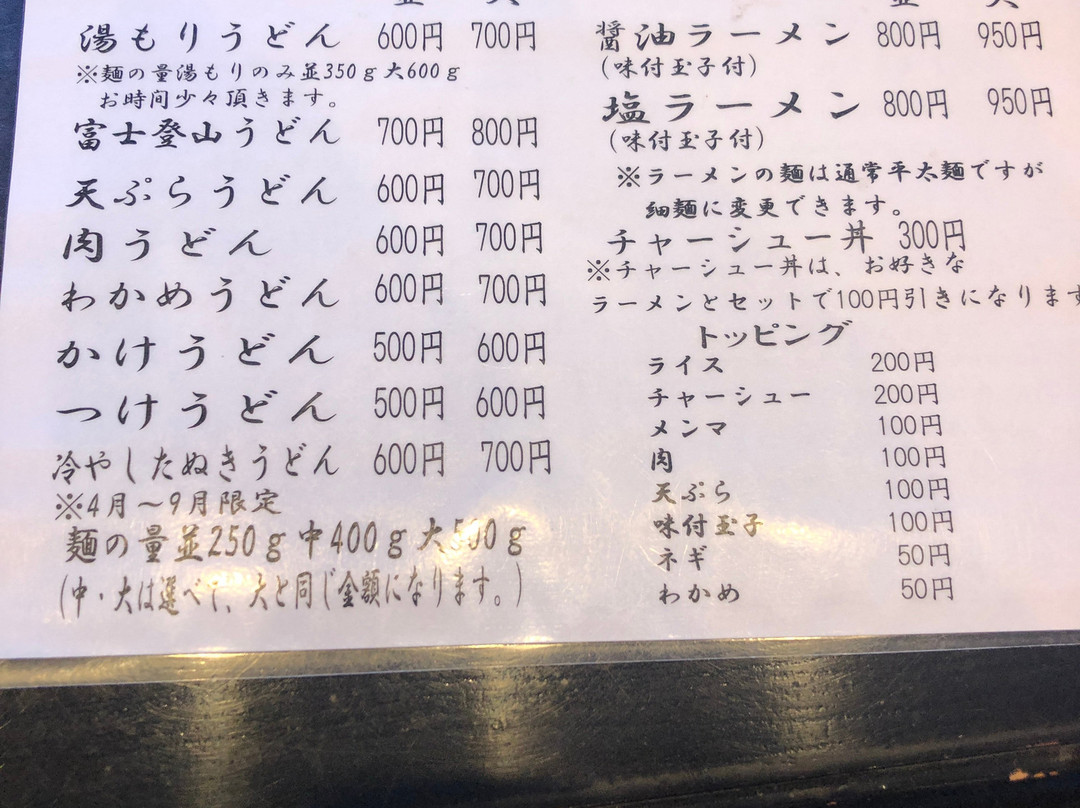 湯もりうどん 600円 700円
※麺の量湯もりのみ並350g大600g
お時間少々頂きます。
富士登山うどん 700円 800円
天ぷらうどん 600円 700円
肉うどん 600円 700円
わかめうどん 600円 700円
かけうどん 500円 600円
つけうどん 500円 600円
冷やしたぬきうどん 600円 700円
※4月～9月限定
麺の量並250g中400g大500g
(中・大は選べて、大と同じ金額になります。)
醤油ラーメン 800円 950円
(味付玉子付)
塩ラーメン 800円 950円
(味付玉子付)
※ラーメンの麺は通常平太麺ですが
細麺に変更できます。
チャーシュー丼 300円
※チャーシュー丼は、お好きな
ラーメンとセットで100円引きになります
トッピング
ライス 200円
チャーシュー 200円
メンマ 100円
肉 100円
天ぷら 100円
味付玉子 100円
ネギ 50円
わかめ 50円